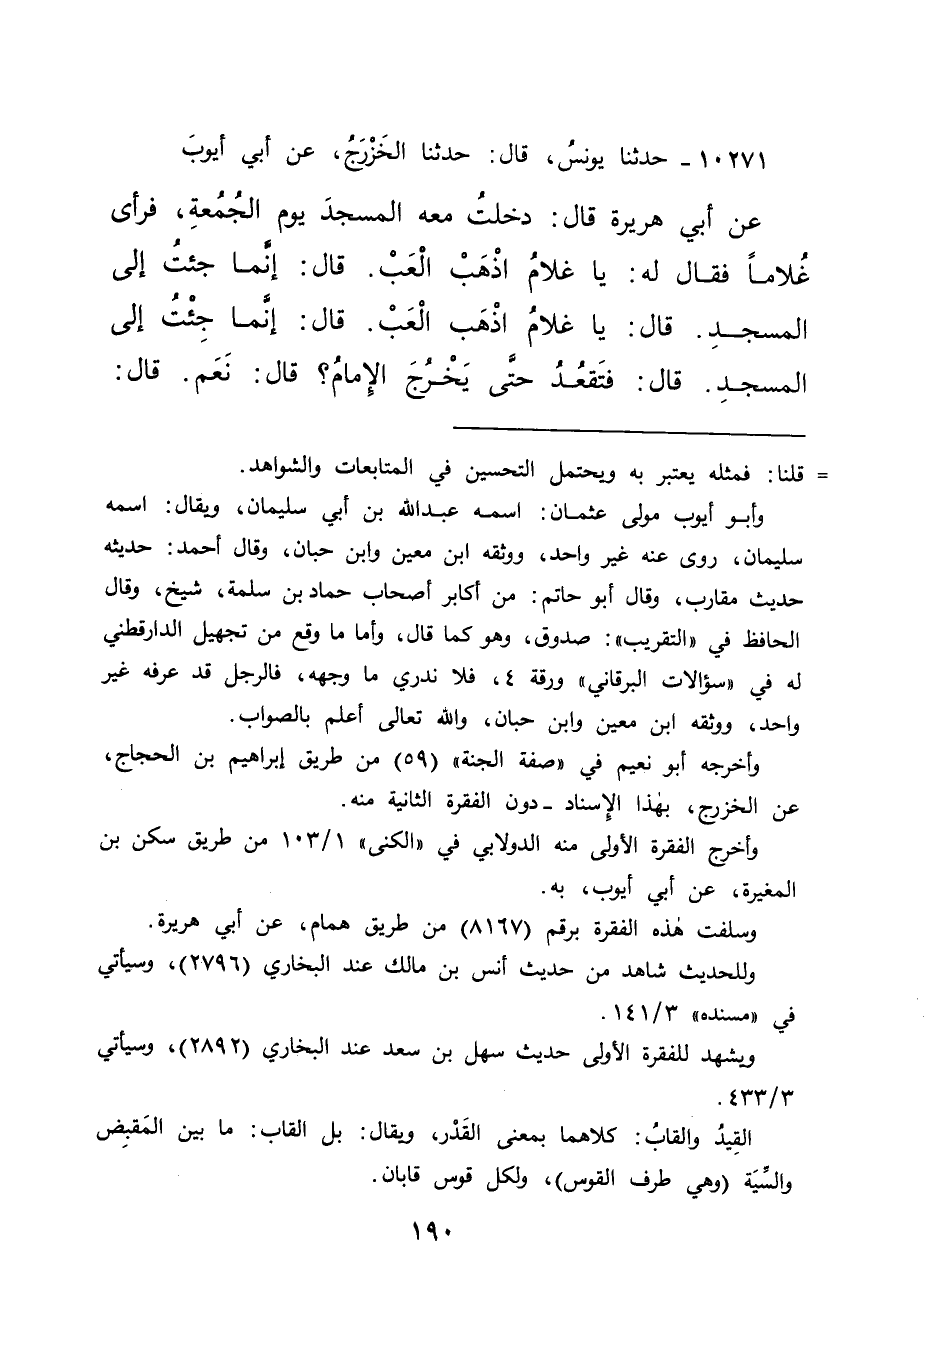 ١٠٢٧١ ـ حدثنا يونسُ، قال: حدثنا الخَزْرَجُ، عن أبي أيوبَ
عن أبي هريرة قال: دخلتُ معه المسجدَ يوم الجُمُعةِ، فرأى
غُلاماً فقال له: يا غلامُ اذْهَبْ الْعَبْ. قال: إنَّما جئتُ إلى
المسجدِ. قال: يا غلامُ اذْهَب الْعَبْ. قال: إنَّما جِئْتُ إلى
المسجدِ. قال: فتَقعُدُ حتَّى يَخْرُجَ الإمامُ؟ قال: نَعَم. قال:
= قلنا: فمثله يعتبر به ويحتمل التحسين في المتابعات والشواهد.
وأبو أيوب مولى عثمان: اسمه عبدالله بن أبي سليمان، ويقال: اسمه
سليمان، روى عنه غير واحد، ووثقه ابن معين وابن حبان، وقال أحمد: حديثه
حديث مقارب، وقال أبو حاتم: من أكابر أصحاب حماد بن سلمة، شيخ، وقال
الحافظ في «التقريب»: صدوق، وهو كما قال، وأما ما وقع من تجهيل الدارقطني
له في «سؤالات البرقاني» ورقة ٤، فلا ندري ما وجهه، فالرجل قد عرفه غير
واحد، ووثقه ابن معين وابن حبان، والله تعالى أعلم بالصواب.
وأخرجه أبو نعيم في «صفة الجنة» (٥٩) من طريق إبراهيم بن الحجاج،
عن الخزرج، بهٰذا الإسناد ـ دون الفقرة الثانية منه.
وأخرج الفقرة الأولى منه الدولابي في «الكنى» ١٠٣/١ من طريق سكن بن
المغيرة، عن أبي أيوب، به.
وسلفت هٰذه الفقرة برقم (٨١٦٧) من طريق همام، عن أبي هريرة.
وللحديث شاهد من حديث أنس بن مالك عند البخاري (٢٧٩٦)، وسيأتي
في «مسنده» ١٤١/٣.
ويشهد للفقرة الأولى حديث سهل بن سعد عند البخاري (٢٨٩٢)، وسيأتي
٤٣٣/٣.
القِيدُ والقابُ: كلاهما بمعنى القَدْر، ويقال: بل القاب: ما بين المَقبِض
والسِّيَة (وهي طرف القوس)، ولكل قوس قابان.
١٩٠